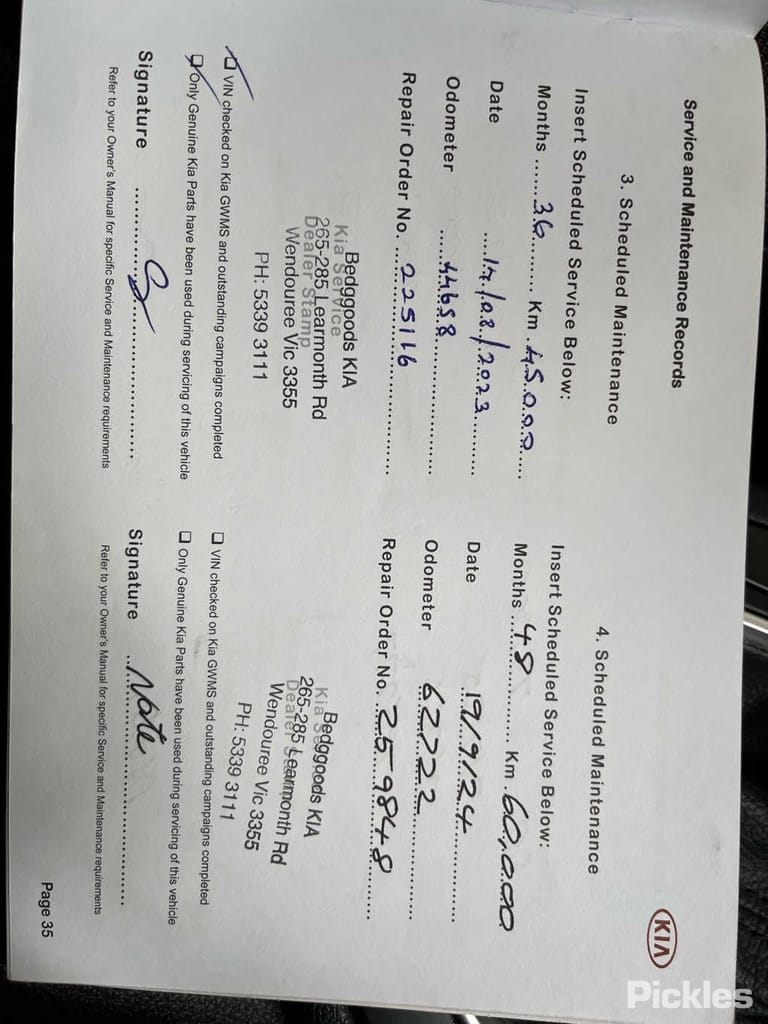 Service and Maintenance Records
KIA
3. Scheduled Maintenance
Insert Scheduled Service Below:
Months ....... 36 .......... Km . 45,000 .....
Date .... 17/02/2023 ..........
Odometer ..... 44658 ..................
Repair Order No. ... 225116 ..................
Kia Service
Dealer Stamp
Bedggoods KIA
265-285 Learmonth Rd
Wendouree Vic 3355
PH: 5339 3111
VIN checked on Kia GWMS and outstanding campaigns completed
Only Genuine Kia Parts have been used during servicing of this vehicle
Signature ........................................
Refer to your Owner's Manual for specific Service and Maintenance requirements
4. Scheduled Maintenance
Insert Scheduled Service Below:
Months ... 48 ............... Km . 60,000
Date ... 19/9/24 ...............
Odometer ... 62722 ...............
Repair Order No. ... 259848 .........
Kia Service
Dealer Stamp
Bedggoods KIA
265-285 Learmonth Rd
Wendouree Vic 3355
PH: 5339 3111
VIN checked on Kia GWMS and outstanding campaigns completed
Only Genuine Kia Parts have been used during servicing of this vehicle
Signature ........................................
Refer to your Owner's Manual for specific Service and Maintenance requirements
Page 35
Pickles